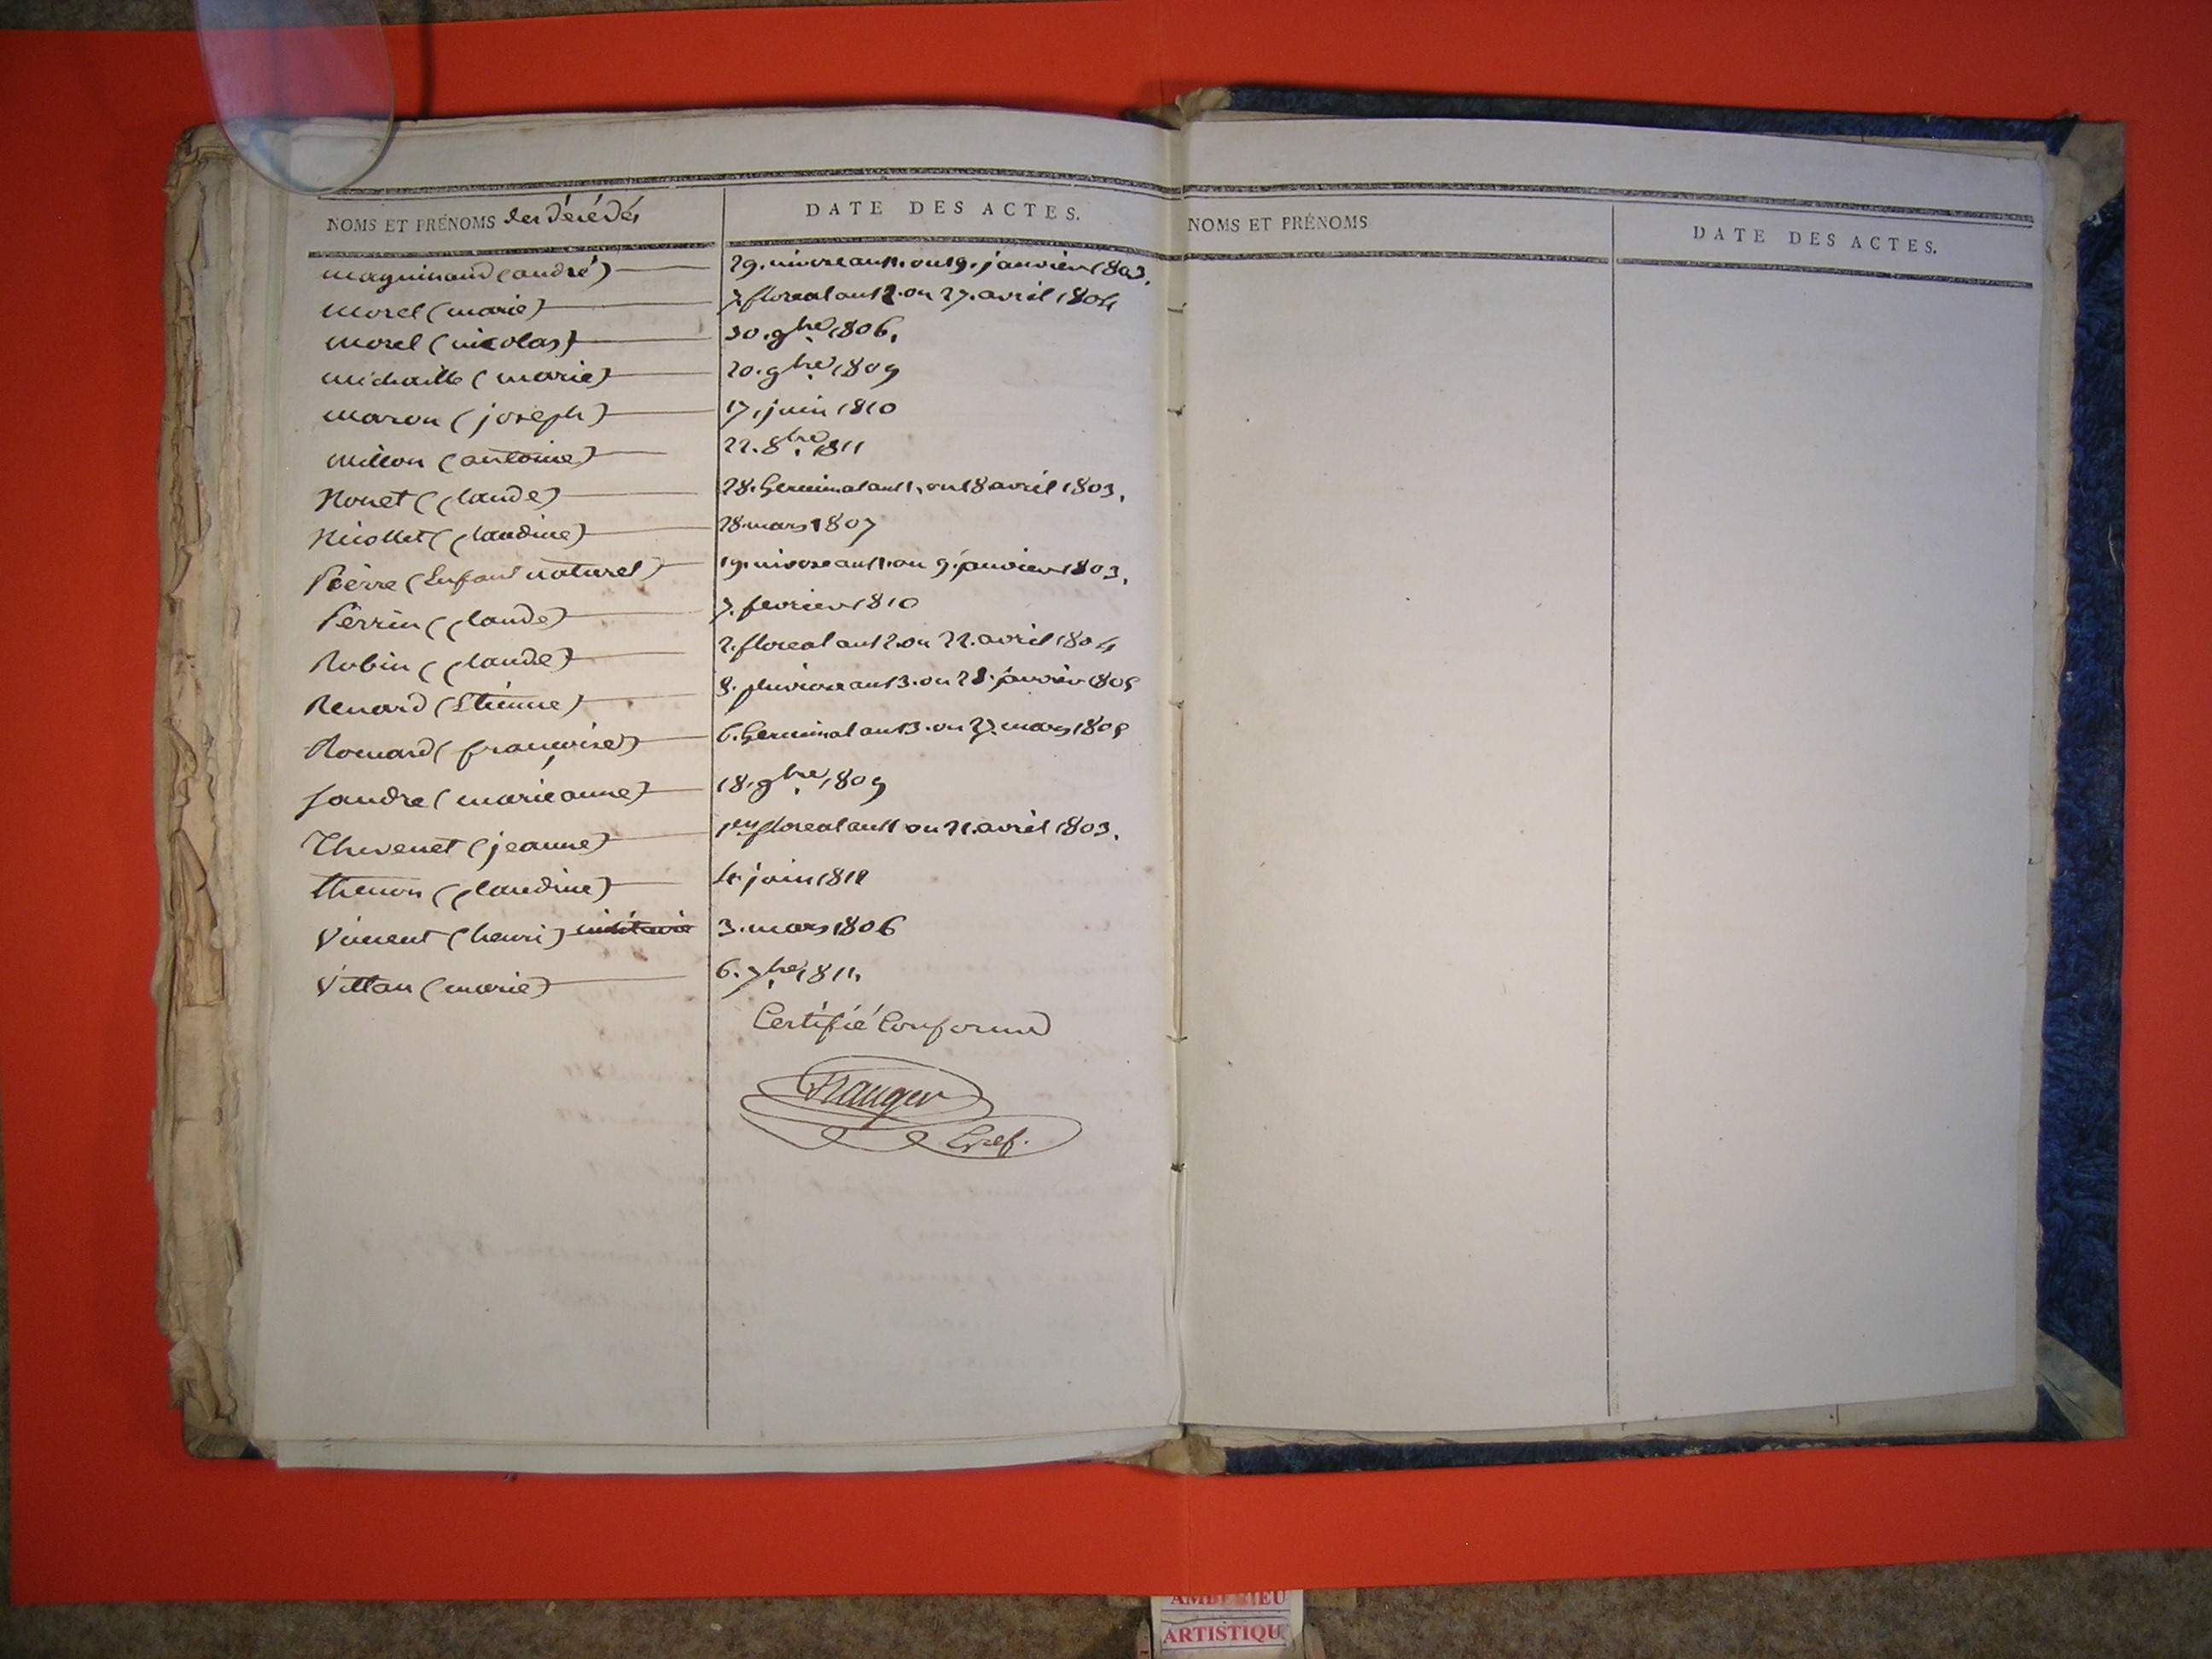 NOMS ET PRÉNOMS des décédés DATE DES ACTES.
maguinaud (andré) 29. nivose an 11. ou 19. janvier 1803.
morel (marie) 7. floreal an 12. ou 27. avril 1804
morel (nicolas) 30. 9bre 1806.
michaille (marie) 20. 9bre 1809
maron (joseph) 17. juin 1810
millon (antoine) 22. 8bre 1811
Nouet (Claude) 28. Germinal an 11. ou 18 avril 1803.
Nicollet (Claudine) 28 mars 1807
Pierre (Enfant naturel) 19. nivose an 11. ou 9. janvier 1803.
Perrin (Claude) 7. fevrier 1810
Robin (Claude) 2. floreal an 12 ou 22. avril 1804
Renard (Etienne) 8. pluviose an 13. ou 28. janvier 1805
Romard (françoise) 6. Germinal an 13. ou 27. mars 1805
Sandre (marie anne) 18. 9bre 1809
Thevenet (jeanne) 1er floreal an 11 ou 21. avril 1803.
thenon (Claudine) 4. juin 1812
Vincent (henri) militaire 3. mars 1806
Vittau (marie) 6. 7bre 1811.
Certifié Conforme
Gref.
NOMS ET PRÉNOMS DATE DES ACTES.
ARTISTIQU